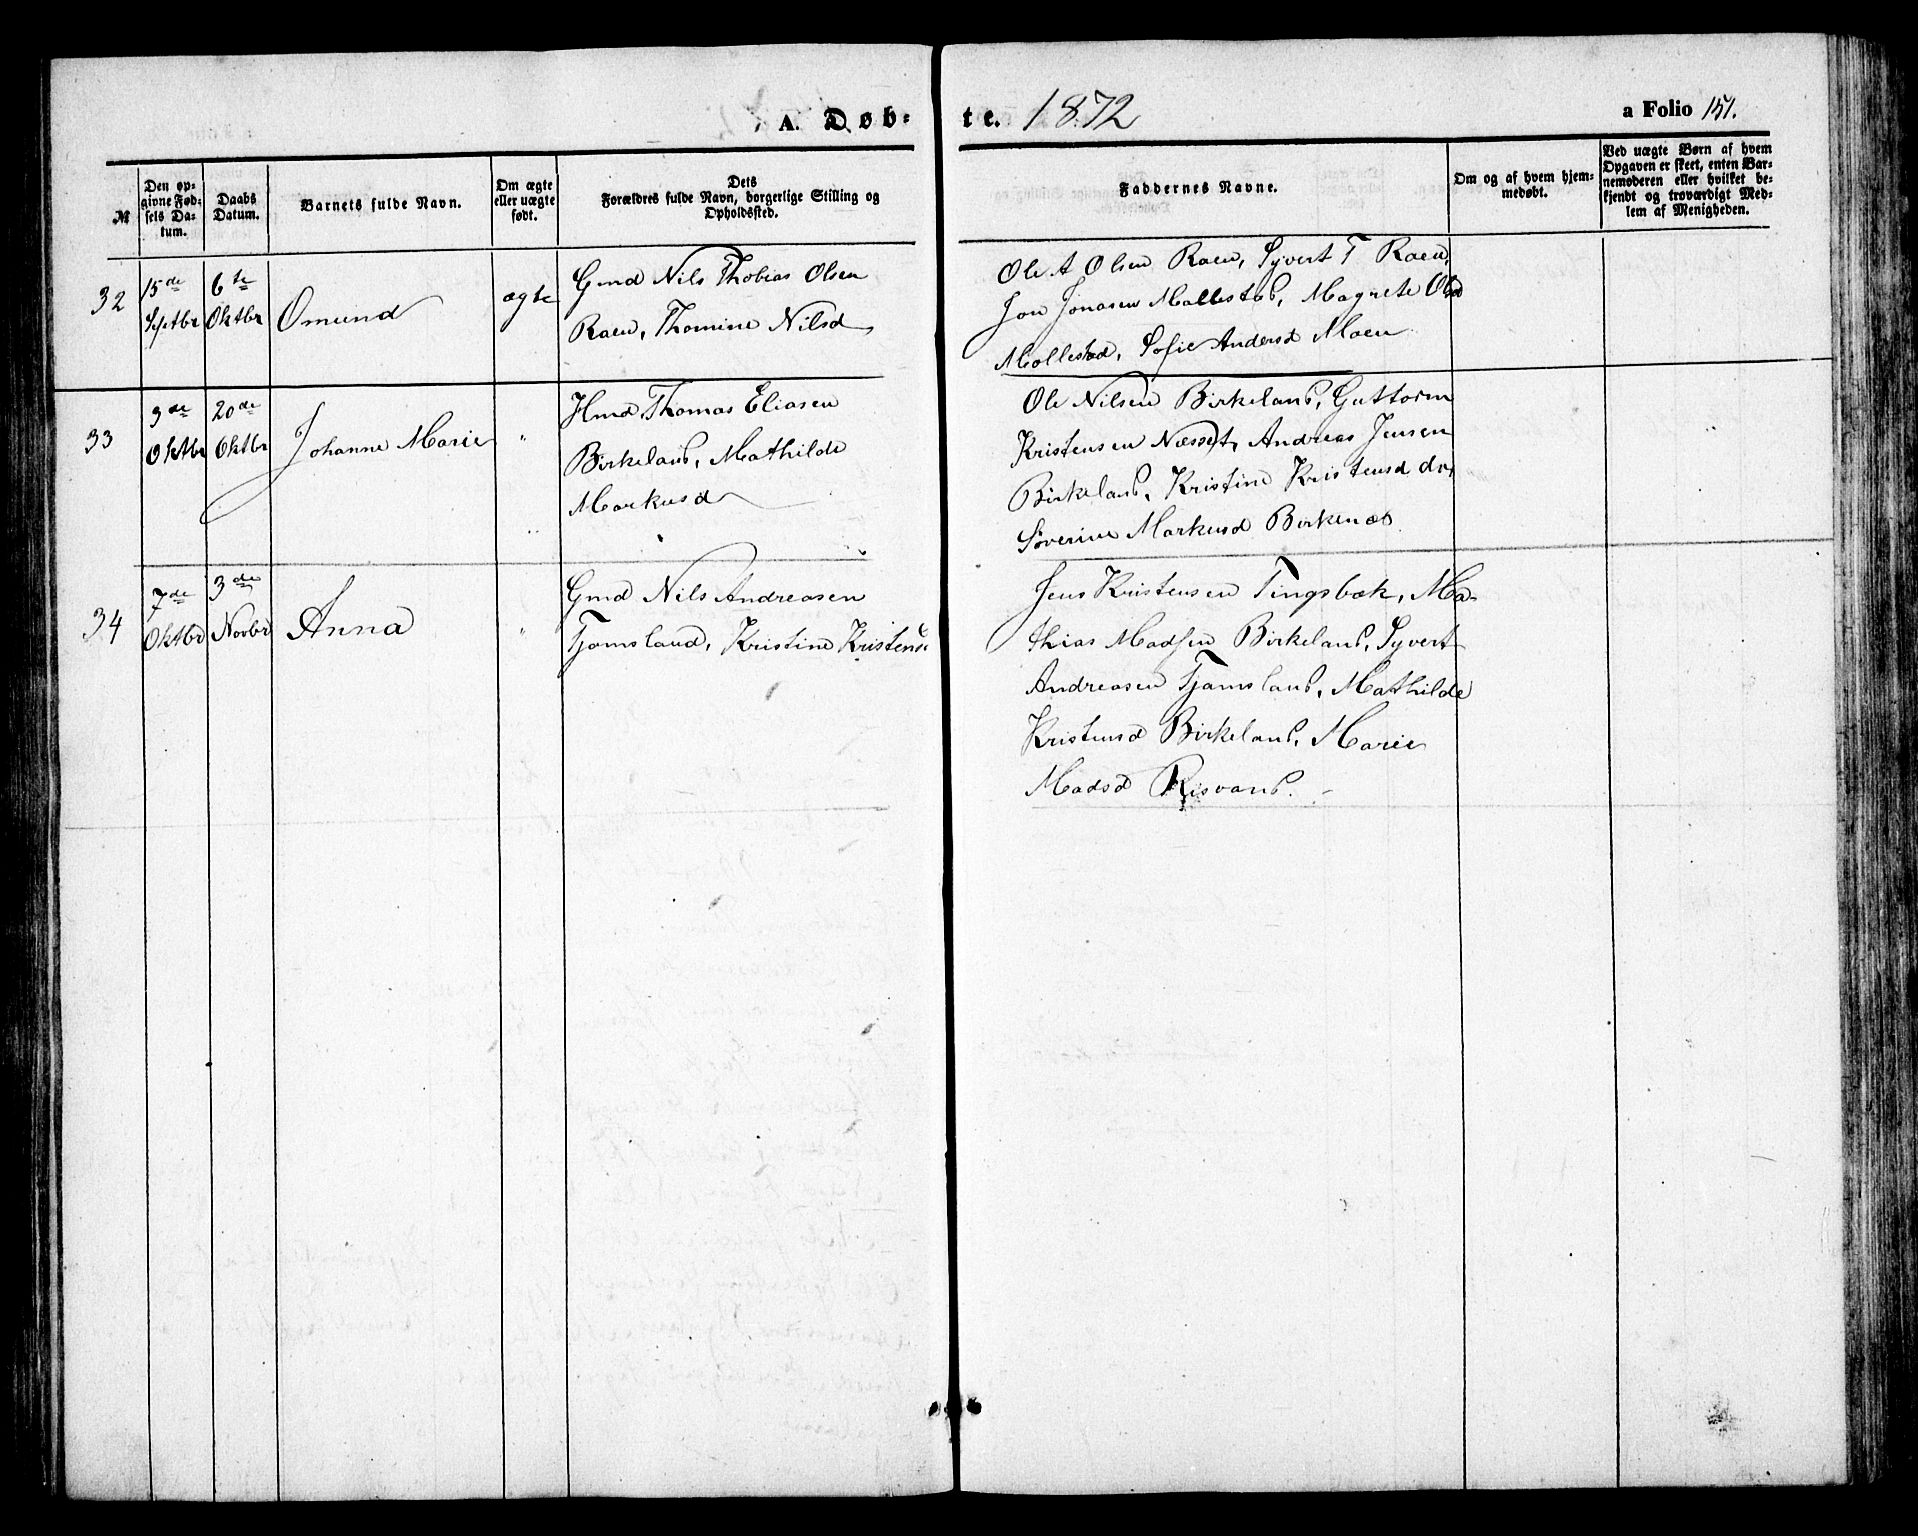 A. Døb-
te. 1872
a Folio 151.
№
Den op-
givne Fød-
sels Da-
tum.
Daabs
Datum.
Barnets fulde Navn.
Om ægte
eller uægte
født.
Dets
Forældres fulde Navn, borgerlige Stilling og
Opholdssted.
Faddernes Navne.
Om og af hvem hjem-
medøbt.
Ved uægte Børn af hvem
Opgaven er skeet, enten Bar-
nemoderen eller hvilket be-
kjendt og troværdigt Med-
lem af Menigheden.
32
15de
Septbr
6te
Oktbr
Omund
ægte
Gmd Nils Thobias Olsen
Raen, Thomine Nilsd
Ole A Olsen Raen, Syvert T Raen,
Jon Jonasen Mollestad, Magrete Olsd
Mollestad, Sofie Andersd Moen
33
3de
Oktbr
20de
Oktbr
Johanne Marie
"
Hmd Thomas Eliasen
Birkeland, Mathilde
Markusd
Ole Nilsen Birkeland, Guttorm
Kristensen Næsset, Andreas Jensen
Birkeland, Kristine Kristensd do,
Søverine Markusd Birkenæs
34
7de
Oktbr
3de
Novbr
Anna
"
Gmd Nils Andreasen
Tjomsland, Kristine Kristensd
Jens Kristensen Tingsbæk, Ma-
thias Madsen Birkeland, Syvert
Andreasen Tjomsland, Mathilde
Kristensd Birkeland, Marie
Madsd Risvand.